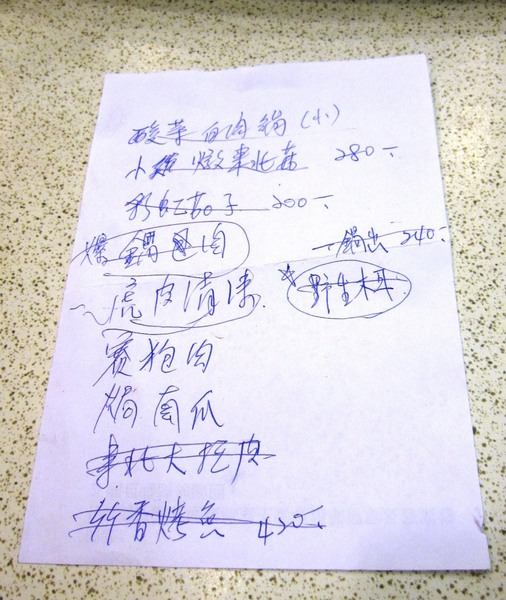 酸菜白肉鍋(小)
小雞燉東北菇 280
彩虹茄子 200
爆鍋包肉 一鍋出 240
虎皮清淡 野生木耳
賽狍肉
焗南瓜
東北大拉皮
香烤魚 420